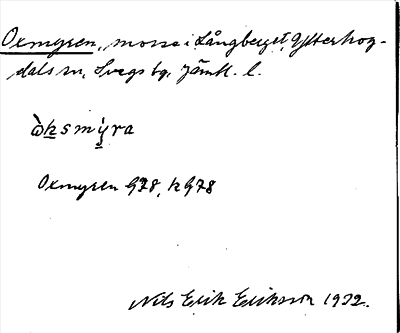 Oxmyren, mosse i Långberget, Ytterhog-
dals sn, Svegs tg. Jämtl. l.
ὼksmýra
Oxmyren G78, K G78
Nils Erik Eriksson 1932.